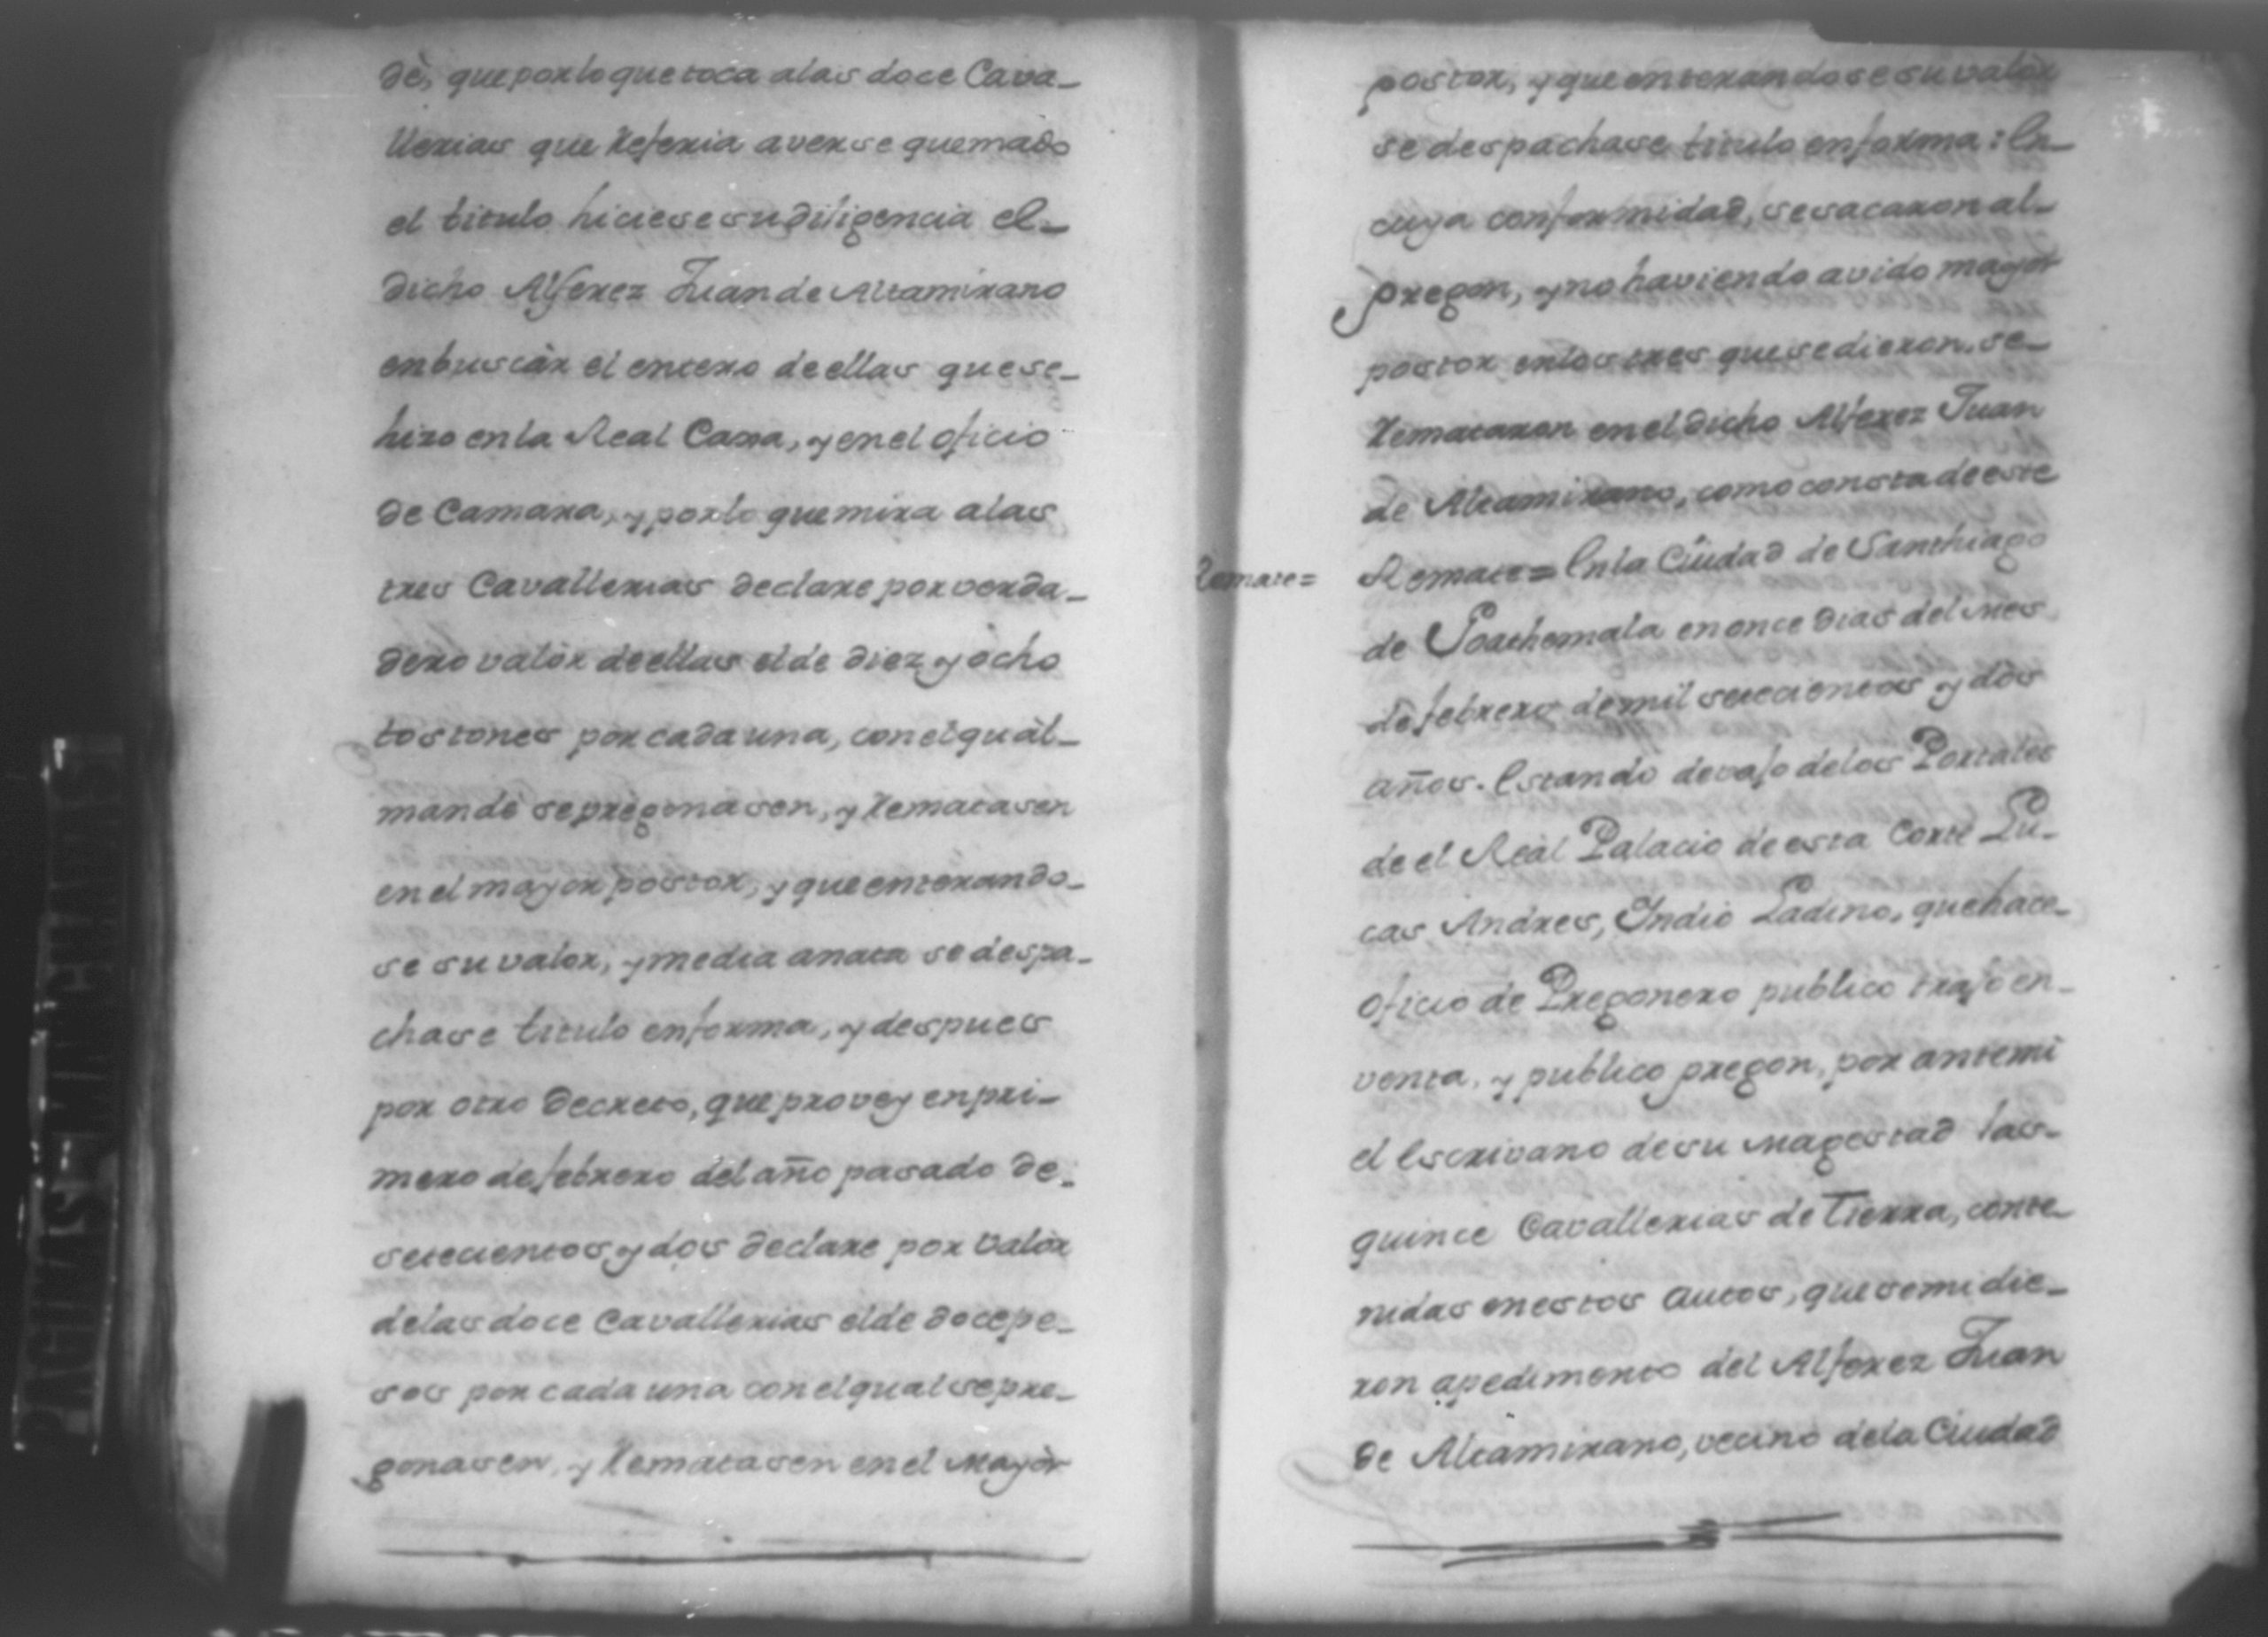 dè, que por lo que toca a las doce Cava-
llerias que Referia averse quemado
el titulo hiciese su diligencia el-
dicho Alferez Juan de Altamirano
en buscàr el entero de ellas que se-
hizo en la Real Caxa, y en el oficio
de Camara, y por lo que mira a las
tres Cavallerias declare por verda-
dero valòr de ellas el de diez y ocho
tostones por cada una, con el qual-
mandè se pregonasen, y Rematasen
en el mayor postor, y que enterando-
se su valor, y media anata se despa-
chase titulo en forma, y despues
por otro Decreto, que provey en pri-
mero de febrero del año pasado de-
setecientos y dos declare por valòr
de las doce Cavallerias el de doce pe-
sos por cada una con el qual se pre-
gonasen, y Rematasen en el Mayòr
postor, y que enterandose su valòr
se despachase titulo en forma: En-
cuya conformidad, se sacaron al-
pregon, y no haviendo avido mayor
postor en los tres que se dieron, se-
Remataron en el dicho Alferez Juan
de Altamirano, como consta de este
Remate=
Remate= En la Ciudad de Santhiago
de Goathemala en once dias del Mes
de febrero de mil setecientos y dòs
años. Estando devajo de los Portales
de el Real Palacio de esta Corte Lu-
cas Andres, Indio Ladino, que hace-
oficio de Pregonero publico trajo en-
venta, y publico pregon, por ante mi
el Escrivano de su Magestad las-
quince Cavallerias de Tierra, conte-
nidas en estos autos, que se midie-
ron a pedimento del Alferez Juan
de Altamirano, vecino de la Ciudad